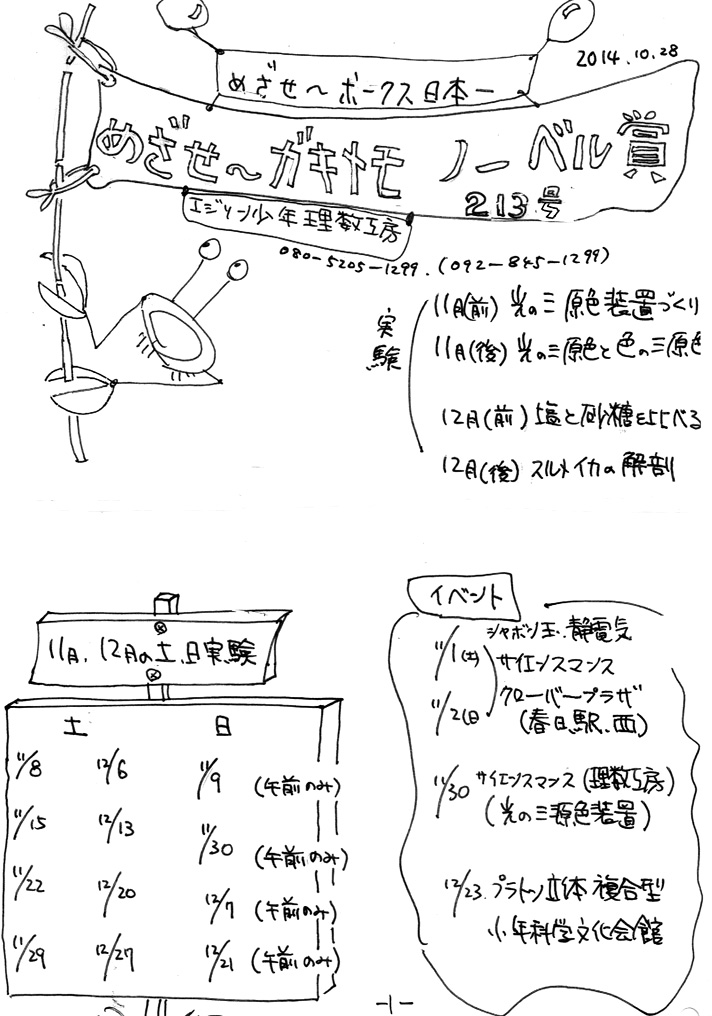 2014.10.28
めざせ〜ボークス日本一
めざせ〜ガキトモ ノーベル賞
213号
エジソン少年理数工房
080-5205-1299.(092-845-1299)
実験
11月(前) 光の三原色装置づくり
11月(後) 光の三原色と色の三原色
12月(前) 塩と砂糖をくらべる
12月(後) スルメイカの解剖
11月、12月の土、日実験
土 日
11/8 12/6 11/9 (午前のみ)
11/15 12/13 11/30 (午前のみ)
11/22 12/20 12/7 (午前のみ)
11/29 12/27 12/21 (午前のみ)
イベント
シャボン玉、静電気
11/1(土) サイエンスマンス
11/2(日) クローバープラザ
(春日駅、西)
11/30 サイエンスマンス(理数工房)
(光の三源色装置)
12/23. プラトン立体 複合型
少年科学文化会館
-1-